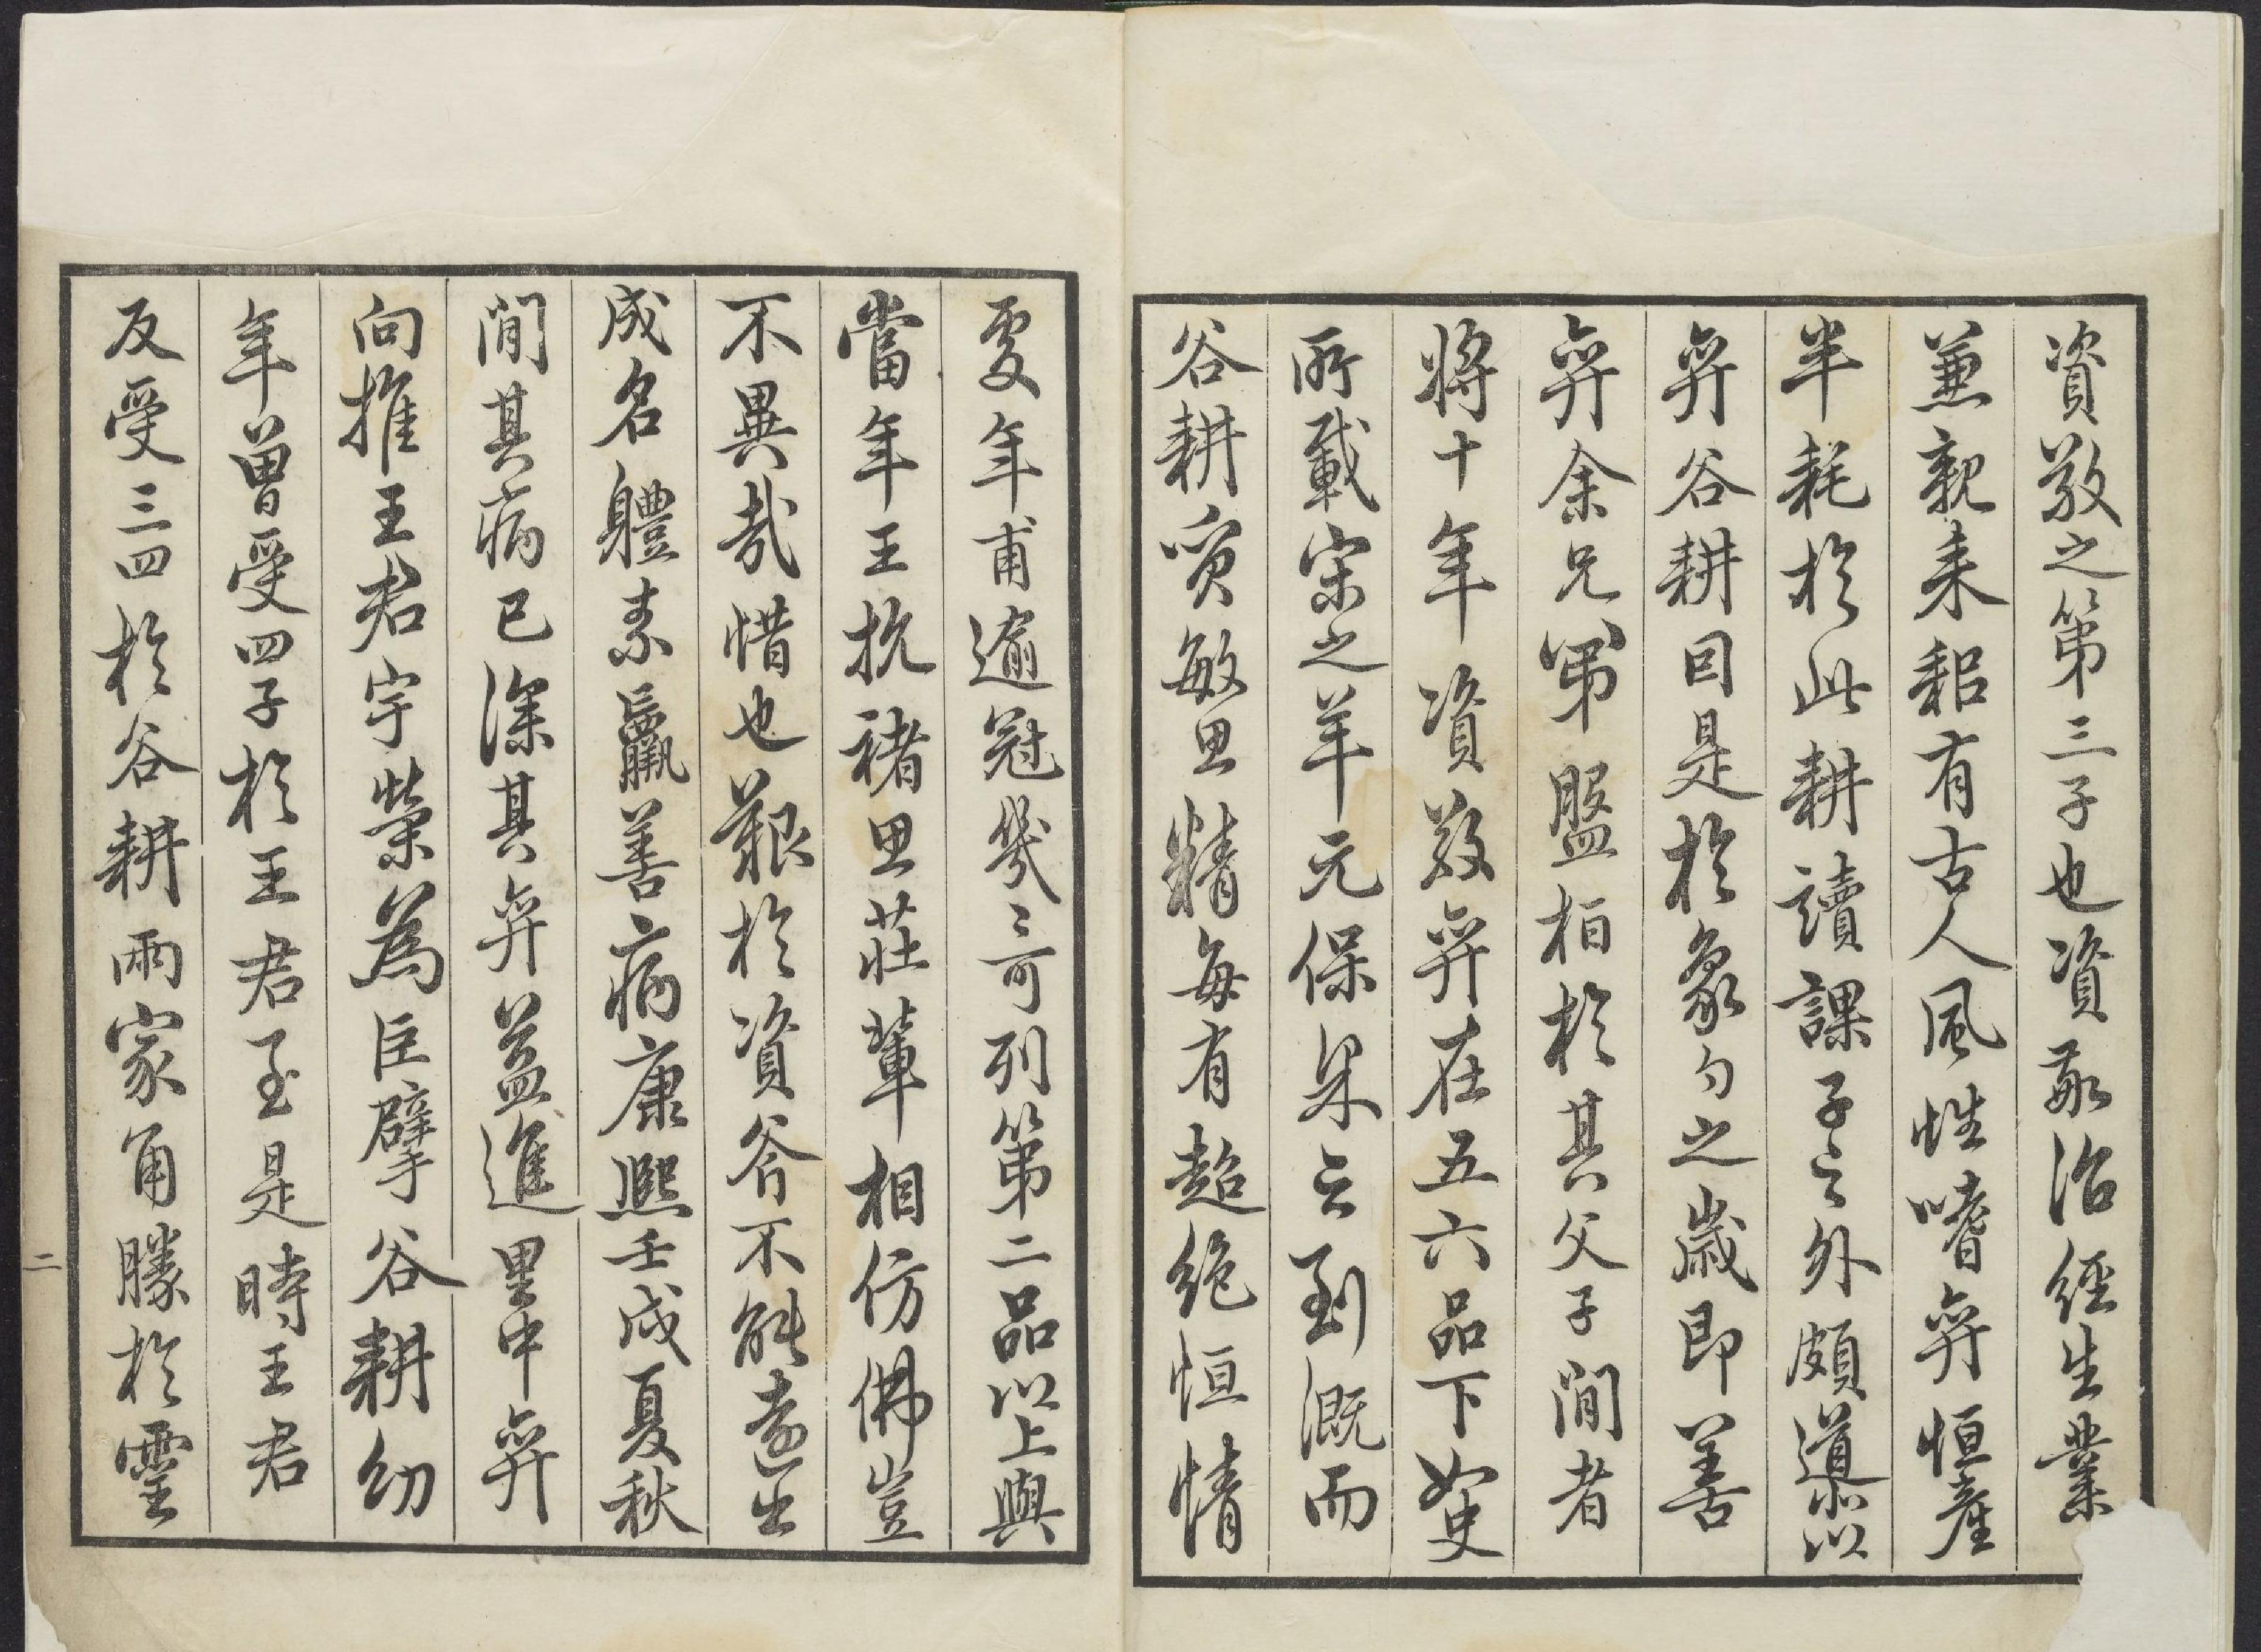 資敬之第三子也資敬治經生業
兼親耒耜有古人風性嗜弈恒產
半耗於此耕讀課子之外頗導以
弈谷耕因是於象勺之歲即善
弈余兄弟盤桓於其父子間者
將十年資敬弈在五六品下如史
所載宋之羊元保梁之到溉而
谷耕質敏思精每有超絕恒情
處年甫逾冠幾〻可列第二品以上與
當年王抗褚思莊輩相仿佛豈
不異哉惜也艱於資斧不能遠出
成名體素羸善病康熙壬戌夏秋
間其病已深其弈益進里中弈
向推王君宇榮為巨擘谷耕幼
年曾受四子於王君至是時王君
反受三四於谷耕兩家角勝於靈
二